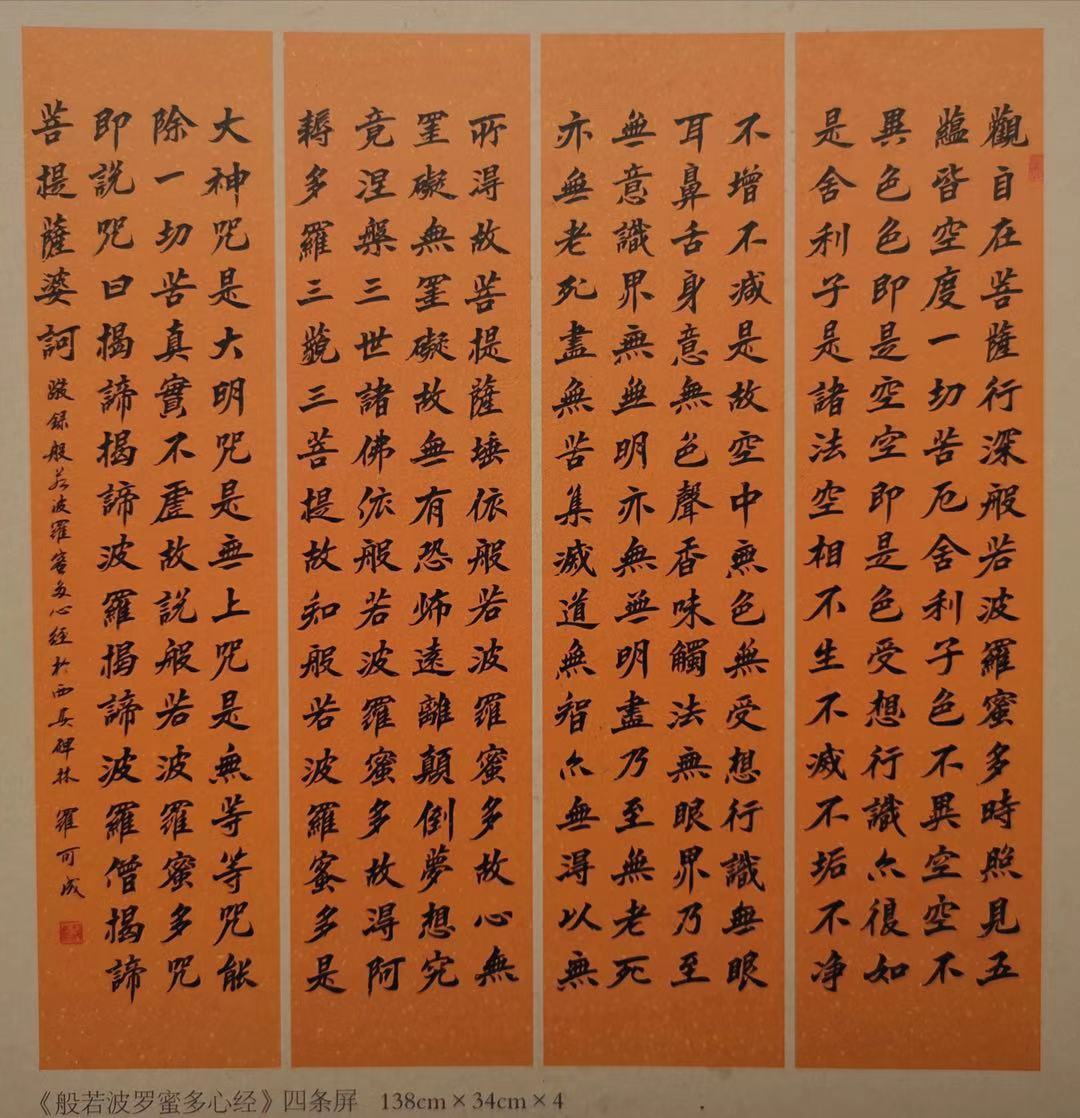 觀自在菩薩行深般若波羅蜜多時照見五
蘊皆空度一切苦厄舍利子色不異空空不
異色色即是空空即是色受想行識亦復如
是舍利子是諸法空相不生不滅不垢不净
不增不减是故空中無色無受想行識無眼
耳鼻舌身意無色聲香味觸法無眼界乃至
無意識界無無明亦無無明盡乃至無老死
亦無老死盡無苦集滅道無智亦無得以無
所得故菩提薩埵依般若波羅蜜多故心無
罣礙無罣礙故無有恐怖遠離顛倒夢想究
竟涅槃三世諸佛依般若波羅蜜多故得阿
耨多羅三藐三菩提故知般若波羅蜜多是
大神咒是大明咒是無上咒是無等等咒能
除一切苦真實不虛故說般若波羅蜜多咒
即說咒曰揭諦揭諦波羅揭諦波羅僧揭諦
菩提薩婆訶 敬錄般若波羅蜜多心經於西安碑林 羅可成
《般若波罗蜜多心经》四条屏 138cm×34cm×4